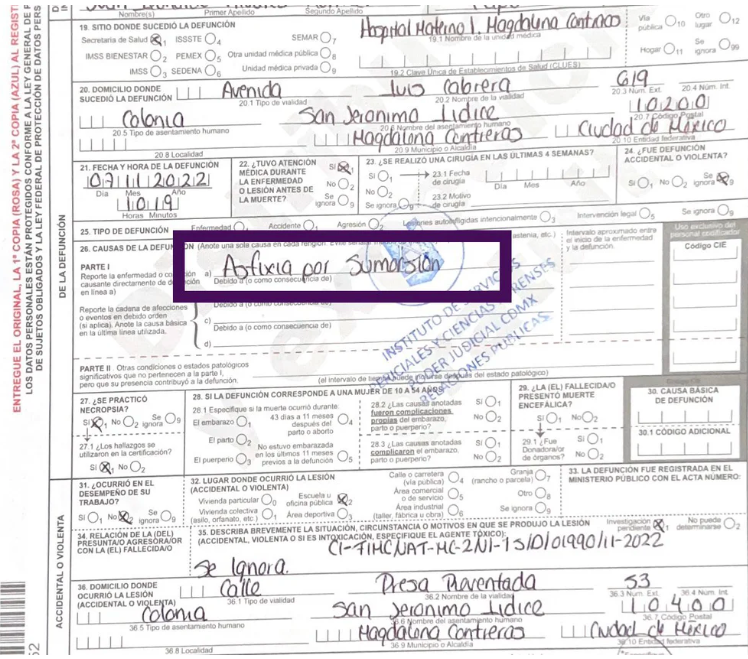 Nombre(s) Primer Apellido Segundo Apellido
19. SITIO DONDE SUCEDIÓ LA DEFUNCIÓN
Hospital Materno I. Magdalena Contreras
19.1 Nombre de la unidad médica
Vía pública 10 Otro lugar 12
Secretaría de Salud 1 ISSSTE 4 SEMAR 7
IMSS BIENESTAR 2 PEMEX 5 Otra unidad médica pública 8
Hogar 11 Se ignora 99
IMSS 3 SEDENA 6 Unidad médica privada 9
19.2 Clave Única de Establecimientos de Salud (CLUES)
20. DOMICILIO DONDE SUCEDIÓ LA DEFUNCIÓN
Avenida Luis Cabrera 619
20.1 Tipo de vialidad 20.2 Nombre de la vialidad 20.3 Núm. Ext. 20.4 Núm. Int.
Colonia San Jeronimo Lidice 10200
20.5 Tipo de asentamiento humano 20.6 Nombre del asentamiento humano 20.7 Código Postal
Magdalena Contreras Ciudad de México
20.8 Localidad 20.9 Municipio o Alcaldía 20.10 Entidad federativa
21. FECHA Y HORA DE LA DEFUNCIÓN
07112022
Día Mes Año
1019
Horas Minutos
22. ¿TUVO ATENCIÓN MÉDICA DURANTE LA ENFERMEDAD O LESIÓN ANTES DE LA MUERTE?
SI 1
No 2
Se ignora 9
23. ¿SE REALIZÓ UNA CIRUGÍA EN LAS ÚLTIMAS 4 SEMANAS?
SI 1 23.1 Fecha de cirugía
Día Mes Año
No 2 23.2 Motivo de cirugía
Se ignora 9
24. ¿FUE DEFUNCIÓN ACCIDENTAL O VIOLENTA?
SI 1 No 2 Se ignora 9
25. TIPO DE DEFUNCIÓN Enfermedad Accidente 1 Agresión 2 autoinfligidas intencionalmente 3 Intervención legal 5 Se ignora 9
26. CAUSAS DE LA DEFUNCIÓN (Anote una sola causa en cada renglón. Evite señalar
Intervalo aproximado entre el inicio de la enfermedad y la defunción
Uso exclusivo del personal codificador
Código CIE
PARTE I
Reporte la enfermedad o condición causante directamente de defunción en línea a)
a) Asfixia por Sumorsión
Debido a (o como consecuencia de)
Reporte la cadena de afecciones o eventos en debido orden (si aplica). Anote la causa básica en la última línea utilizada.
Debido a (o como consecuencia de)
c) Debido a (o como consecuencia de)
d)
INSTITUTO DE SERVICIOS
PERICIALES Y CIENCIAS FORENSES
PODER JUDICIAL CDMX
RELACIONES PÚBLICAS
PARTE II. Otras condiciones o estados patológicos significativos que no pertenecen a la parte I, pero que su presencia contribuyó a la defunción.
27. ¿SE PRACTICÓ NECROPSIA?
SI 1 No 2 Se ignora 9
27.1 ¿Los hallazgos se utilizaron en la certificación?
SI 1 No 2
28. SI LA DEFUNCIÓN CORRESPONDE A UNA MUJER DE 10 A 54 AÑOS
28.1 Especifique si la muerte ocurrió durante
El embarazo 1 43 días a 11 meses después del parto o aborto 4
El parto 2
El puerperio 3 No estuvo embarazada en los últimos 11 meses previos a la defunción 5
28.2 ¿Las causas anotadas fueron complicaciones propias del embarazo, parto o puerperio?
SI 1
No 2
28.3 ¿Las causas anotadas complicaron el embarazo, parto o puerperio?
SI 1
No 2
29. ¿LA (EL) FALLECIDA/O PRESENTÓ MUERTE ENCEFÁLICA?
SI 1 No 2
29.1 ¿Fue Donadora/or de órganos?
SI 1
No 2
30. CAUSA BÁSICA DE DEFUNCIÓN
30.1 CÓDIGO ADICIONAL
31. ¿OCURRIÓ EN EL DESEMPEÑO DE SU TRABAJO?
SI 1 No 2 Se ignora 9
32. LUGAR DONDE OCURRIÓ LA LESIÓN (ACCIDENTAL O VIOLENTA)
Vivienda particular 0 Escuela u oficina pública 2
Vivienda colectiva (asilo, orfanato, etc.) 1 Área deportiva 3
Calle o carretera (vía pública) 4 Granja (rancho o parcela) 7
Área comercial o de servicio 5 Otro 8
Área industrial (taller, fábrica u obra) 6 Se ignora 9
33. LA DEFUNCIÓN FUE REGISTRADA EN EL MINISTERIO PÚBLICO CON EL ACTA NÚMERO:
34. RELACIÓN DE LA (DEL) PRESUNTA/O AGRESORA/OR CON LA (EL) FALLECIDA/O
Se Ignora
35. DESCRIBA BREVEMENTE LA SITUACIÓN, CIRCUNSTANCIA O MOTIVOS EN QUE SE PRODUJO LA LESIÓN (ACCIDENTAL, VIOLENTA O SI ES INTOXICACIÓN, ESPECIFIQUE EL AGENTE TÓXICO):
Investigación pendiente 1 No puede determinarse 2
36. DOMICILIO DONDE OCURRIÓ LA LESIÓN (ACCIDENTAL O VIOLENTA)
Calle Presa Reventada 53
36.1 Tipo de vialidad 36.2 Nombre de la vialidad 36.3 Núm. Ext. 36.4 Núm. Int.
Colonia San Jeronimo Lidice 10400
36.5 Tipo de asentamiento humano 36.6 Nombre del asentamiento humano 36.7 Código Postal
Magdalena Contreras Ciudad de México
36.8 Localidad 36.9 Municipio o Alcaldía 36.10 Entidad federativa
ENTREGUE EL ORIGINAL, LA 1ª COPIA (ROSA) Y LA 2ª COPIA (AZUL) AL REGIST
LOS DATOS PERSONALES ESTÁN PROTEGIDOS CONFORME LA LEY GENERAL DE
DE SUJETOS OBLIGADOS Y LA LEY FEDERAL DE PROTECCIÓN DE DATOS PERS
DE LA DEFUNCIÓN
ACCIDENTAL O VIOLENTA